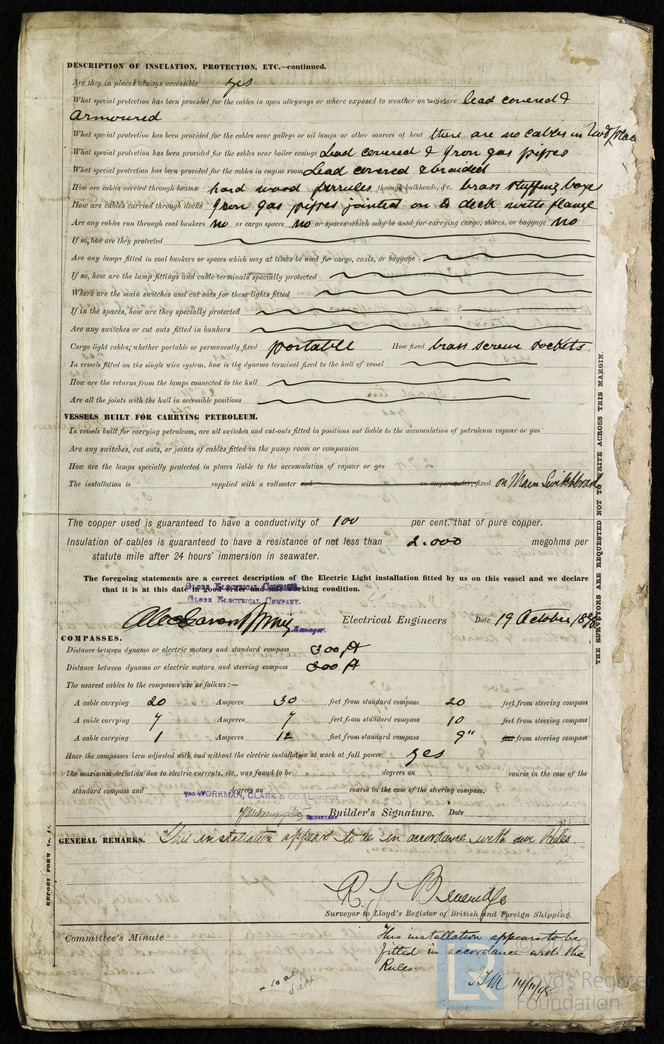 DESCRIPTION OF INSULATION, PROTECTION, ETC.—continued.
Are they in places always accessible yes
What special protection has been provided for the cables in open alleyways or where exposed to weather or moisture lead covered &
armoured
What special protection has been provided for the cables near galleys or oil lamps or other sources of heat there are no cables in such places
What special protection has been provided for the cables near boiler casings Lead covered & Iron gas pipes
What special protection has been provided for the cables in engine room Lead covered & braided
How are cables carried through beams hard wood ferrules through bulkheads, &c. brass stuffing boxes
How are cables carried through decks Iron gas pipes jointed on to deck with flange
Are any cables run through coal bunkers no or cargo spaces no or spaces which may be used for carrying cargo, stores, or baggage no
If so, how are they protected
Are any lamps fitted in coal bunkers or spaces which may at times be used for cargo, coals, or baggage
If so, how are the lamp fittings and cable terminals specially protected
Where are the main switches and cut outs for these lights fitted
If in the spaces, how are they specially protected
Are any switches or cut outs fitted in bunkers
Cargo light cables, whether portable or permanently fixed portable How fixed brass screw sockets
In vessels fitted on the single wire system, how is the dynamo terminal fixed to the hull of vessel
How are the returns from the lamps connected to the hull
Are all the joints with the hull in accessible positions
VESSELS BUILT FOR CARRYING PETROLEUM.
In vessels built for carrying petroleum, are all switches and cut-outs fitted in positions not liable to the accumulation of petroleum vapour or gas
Are any switches, cut outs, or joints of cables fitted in the pump room or companion
How are the lamps specially protected in places liable to the accumulation of vapour or gas
The installation is supplied with a voltmeter an amperemeter, fixed on Main Switchboard
The copper used is guaranteed to have a conductivity of 100 per cent. that of pure copper.
Insulation of cables is guaranteed to have a resistance of not less than 2.000 megohms per
statute mile after 24 hours' immersion in seawater.
The foregoing statements are a correct description of the Electric Light installation fitted by us on this vessel and we declare
that it is at this date in good order and safe working condition.
GLOBE ELECTRICAL COMPANY.
GLOBE ELECTRICAL COMPANY.
Manager. Electrical Engineers Date 19 October 1898
COMPASSES.
Distance between dynamo or electric motors and standard compass 300 ft
Distance between dynamo or electric motors and steering compass 300 ft
The nearest cables to the compasses are as follows:—
A cable carrying 20 Amperes 30 feet from standard compass 20 feet from steering compass
A cable carrying 7 Amperes 7 feet from standard compass 10 feet from steering compass
A cable carrying 1 Amperes 12 feet from standard compass 9" feet from steering compass
Have the compasses been adjusted with and without the electric installation at work at full power yes
The maximum deviation due to electric currents, etc., was found to be degrees on course in the case of the
standard compass and degrees on course in the case of the steering compass.
WORKMAN, CLARK & CO. LIMITED
SECRETARY Builder's Signature. Date
GENERAL REMARKS. This installation appears to be in accordance with our Rules.
Surveyor to Lloyd's Register of British and Foreign Shipping.
Committee's Minute This installation appears to be
fitted in accordance with the
Rules
THE SURVEYORS ARE REQUESTED NOT TO WRITE ACROSS THIS MARGIN.
Lloyd's Register
Foundation